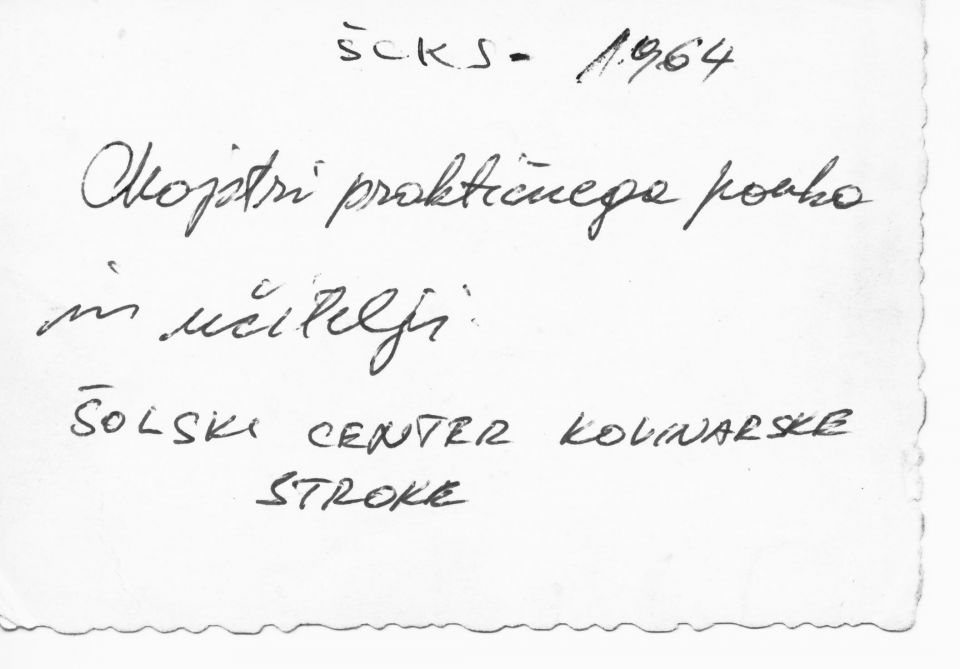 ŠCKS - 1964
Mojstri praktičnega pouka
in učitelji
ŠOLSKI CENTER KOVINARSKE
STROKE